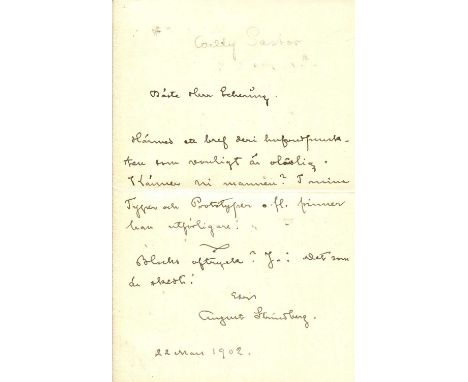 Willy Pastor
Bäste Herr Schering.
Härmed ett bref deri hufvudpunk-
ten som vanligt är oläslig.
Känner ni mannen? I mina
Typer och Prototyper o fl. finner
han utförligare!
Blocks aftryck? Ja! Det som
är skedt!
Eder
August Strindberg.
22 Mars 1902.